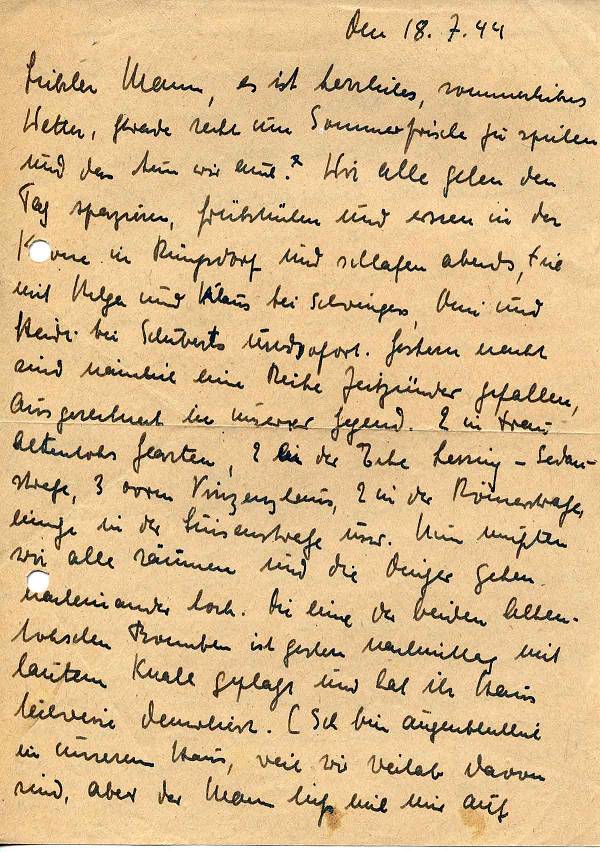 Den 18. 7. 44
Liebster Mann, es ist herrliches, sommerliches
Wetter, gerade recht um Sommerfrische zu spielen
und das tun wir auch. Wir alle gehen den
Tag spazieren, frühstücken und essen in der
Krone in Rüngsdorf und schlafen abends,
mit Helga und Klaus bei Schwingers, Omi und
Heidi bei Schuberts undsofort. Gestern nacht
sind nämlich eine Reihe Zeitzünder gefallen,
ausgerechnet in unserer Gegend. 2 in Frau
Altenlohs Garten, 2 an der Ecke Lessing - Sedan-
straße, 3 vorm Vinzenzhaus, 2 in der Römerstraße,
einige in der Luisenstraße usw. Nun mußten
wir alle räumen und die Dinger gehen
nacheinander los. Die eine der beiden Alten-
lohschen Bomben ist gestern nachmittag mit
lautem Knall geplatzt und hat ihr Haus
teilweise demoliert. (Ich bin augenblicklich
in unserem Haus, weil wir weitab davon
sind, aber der Mann ließ mich nur auf